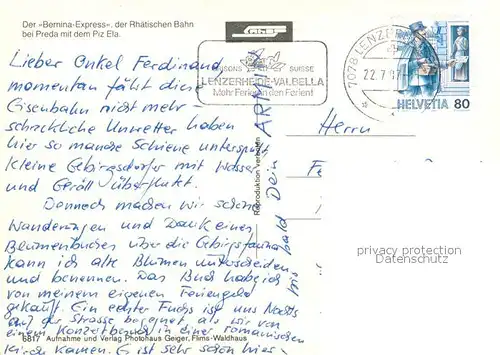 Der «Bernina-Express», der Rhätischen Bahn
bei Preda mit dem Piz Ela.
Lieber Onkel Ferdinand,
momentan fährt diese
Eisenbahn nicht mehr -
schreckliche Unwetter haben
hier so manche Schiene unterspült,
kleine Gebirgsdörfer mit Wasser
und Geröll überflutet.
Dennoch machen wir schöne
Wanderungen und Dank eines
Blumenbuches über die Gebirgsfauna
kann ich alle Blumen unterscheiden
und benennen. Das Buch habe ich
von meinem eigenen Feriengeld
gekauft. Ein echter Fuchs ist uns Nachts
auf der Strasse begegnet, als wir von
einem Konzertbesuch in einer romanischen
Kirche kamen. Es ist sehr schön hier -
bald Dein ARMIN
6817 Aufnahme und Verlag Photohaus Geiger, Flims-Waldhaus
Reproduktion verboten
SUISSE
LENZERHEIDE-VALBELLA
Mehr Ferien in den Ferien!
7078 LENZER
22.7.87
HELVETIA 80
Herrn
privacy protection
Datenschutz